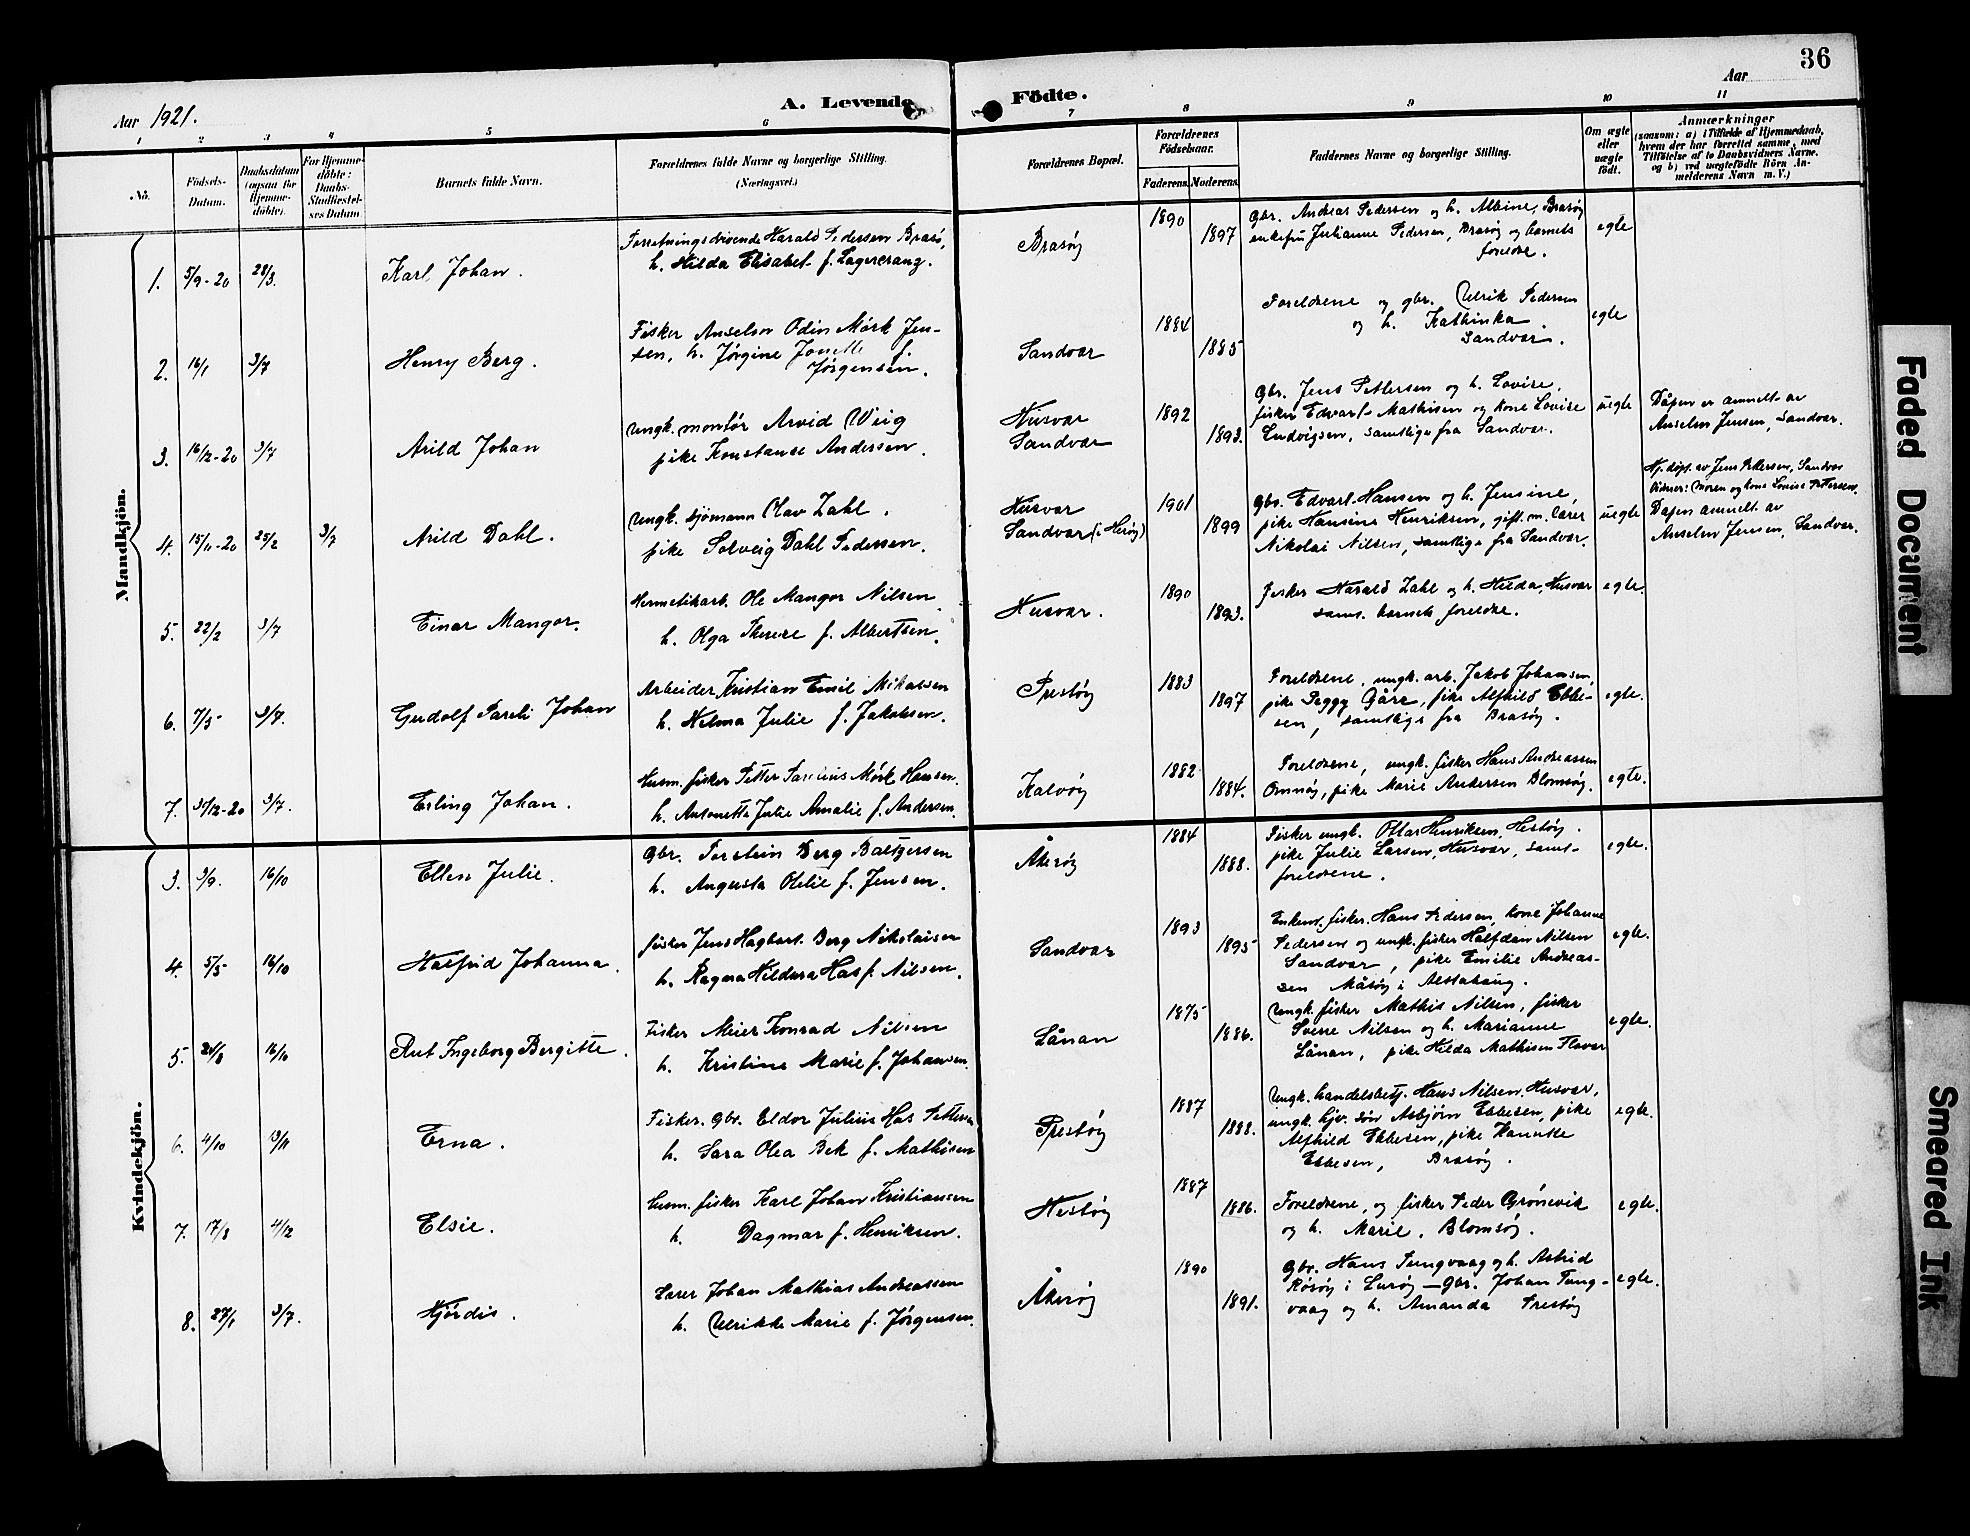 36
Aar 1921.
A. Levende Födte.
Aar
1 2 3 4 5 6 7 8 9 10 11
No.
Födsels-Datum.
Daabsdatum (ogsaa for Hjemme-döbte).
For Hjemme-döbte: Daabs-Stadfæstel-ses Datum
Barnets fulde Navn.
Forældrenes fulde Navne og borgerlige Stilling. (Næringsvei.)
Forældrenes Bopæl.
Forældrenes Födselsaar.
Faderens. Moderens.
Faddernes Navne og borgerlige Stilling.
Om ægte eller uægte födt.
Anmærkninger
(saasom: a) i Tilfælde af Hjemmedaab, hvem der har forrettet samme, med Tilföielse af to Daabsvidners Navne, og b) ved uægtefödte Börn An-melderens Navn m. V.)
Mandkjön.
1. 5/9-20 28/3. Karl Johan.
Forretningsdrivende Harald Pedersen Brasö,
h. Hilda Elisabet f. Lagercranz.
Brasöy 1890 1897
Gbr. Andreas Pedersen og h. Albine, Brasöy
enkefru Julianne Pedersen, Brasöy og barnets
foreldre.
egte
2. 16/1 3/7 Henry Berg.
Fisker Anselm Odin Mörk Jen-
sen, h. Jörgine Jonette f.
Jörgensen.
Sandvær 1884 1885
Foreldrene og gbr. Ulrik Pedersen
og h. Kathinka
Sandvær.
egte
3. 16/12-20 3/7 Arild Johan
Ungk. montör Arvid Wiig
pike Konstanse Andersen.
Husvær
Sandvær
1892 1893.
Gbr. Jens Pettersen og h. Lovise,
fisker Edvart Mathisen og kone Lovise
Ludvigsen, samtlige fra Sandvær.
uegte
Dåpen er anmelt av
Anselm Jensen, Sandvær.
4. 15/11-20 25/2 3/7 Arild Dahl.
Ungk. sjömann Olav Zahl.
pike Solveig Dahl Pedersen.
Husvær
Sandvær (i Heröy)
1901 1899
Gbr. Edvart Hansen og h. Jensine,
pike Hansine Henriksen, gift m. lærer
Nikolai Nilsen, samtlige fra Sandvær.
uegte
Hj. döpt av Jens Pettersen, Sandvær
Vidner: Moren og kone Lovise Pettersen.
Dåpen anmelt av
Anselm Jensen, Sandvær.
5. 22/2 3/7 Einar Mangor.
Hermetikarb. Ole Mangor Nilsen
h. Olga Therese f. Albertsen.
Husvær. 1890 1893.
Fisker Harald Zahl og h. Hilda, Husvær
sams. barnets foreldre.
egte.
6. 7/5 3/7. Gudolf Pareli Johan
Arbeider Kristian Emil Mikalsen
h. Helma Julie f. Jakobsen.
Prestöy 1883 1897
Foreldrene, ungk. arb. Jakob Johansen,
pike Peggy Gåre, pike Alfhild Ebbe-
sen, samtlige fra Brasöy.
egte.
7. 31/12-20 3/7. Erling Johan.
Husm. fisker Petter Mörk Hansen.
h. Antonette Julie Amalie f. Andersen.
Kalvöy 1882 1884.
Foreldrene, ungk. fisker Hans Andreassen
Omnöy, pike Marie Andersen Blomsöy.
egte.
Kvindekjön.
3. 3/9. 16/10 Ellen Julie.
Gbr. Torstein Berg Baltzersen
h. Angusta Otelie f. Jensen.
Åkeröy 1884 1888.
Fisker ungk. Ottar Henriksen, Hestöy.
pike Julie Larsen, Husvær, samt-
foreldrene.
egte.
4. 5/5 16/10 Halfrid Johanna.
fisker Jens Hagbart Berg Nikolaisen
h. Ragna Hildura Has f. Nilsen.
Sandvær 1893 1895
Enkem. fisker Hans Pedersen, kone Johanne
Pedersen og ungk. fisker Halfdan Nilsen
Sandvær, pike Emilie Andreas-
sen Måsöy i Alstahaug.
egte.
5. 16/10 Rut Ingeborg Bergitte.
Fisker Meier Konrad Nilsen
h. Kristine Marie f. Johansen.
Lånan 1875 1886.
Ungk. fisker Mathis Nilsen, fisker
Sverre Nilsen og h. Marianne
Lånan, pike Hilda Mathisen Flovær
egte.
6. 4/10 13/11 Erna.
Fisker. Gbr. Eldor Julius Has Pettersen
h. Sara Olea Bek f. Mathisen
Prestöy 1887 1888.
Ungk. handelsbetj. Hans Nilsen, Husvær,
ungk. hjv. sön Asbjörn Ebbesen, pike
Alfhild Ebbesen, pike Hanette
Ebbesen, Brasöy.
egte.
7. 17/8 4/12 Elsie.
Husm. fisker Karl Johan Kristiansen
h. Dagmar f. Henriksen.
Hestöy 1887 1886.
Foreldrene, og fisker Peder Grönsvik
og h. Marie, Blomsöy.
egte.
8. 27/1 3/7. Hjördis.
Lærer Johan Mathias Andreassen
h. Ulrikke Marie f. Jörgensen.
Åkeröy 1890 1891.
Gbr. Hans Tungvaag og h. Astrid
Rösöy i Luröy — Gbr. Johan Tung-
vaag og h. Amanda Prestöy
egte.
Faded Document
Smeared Ink